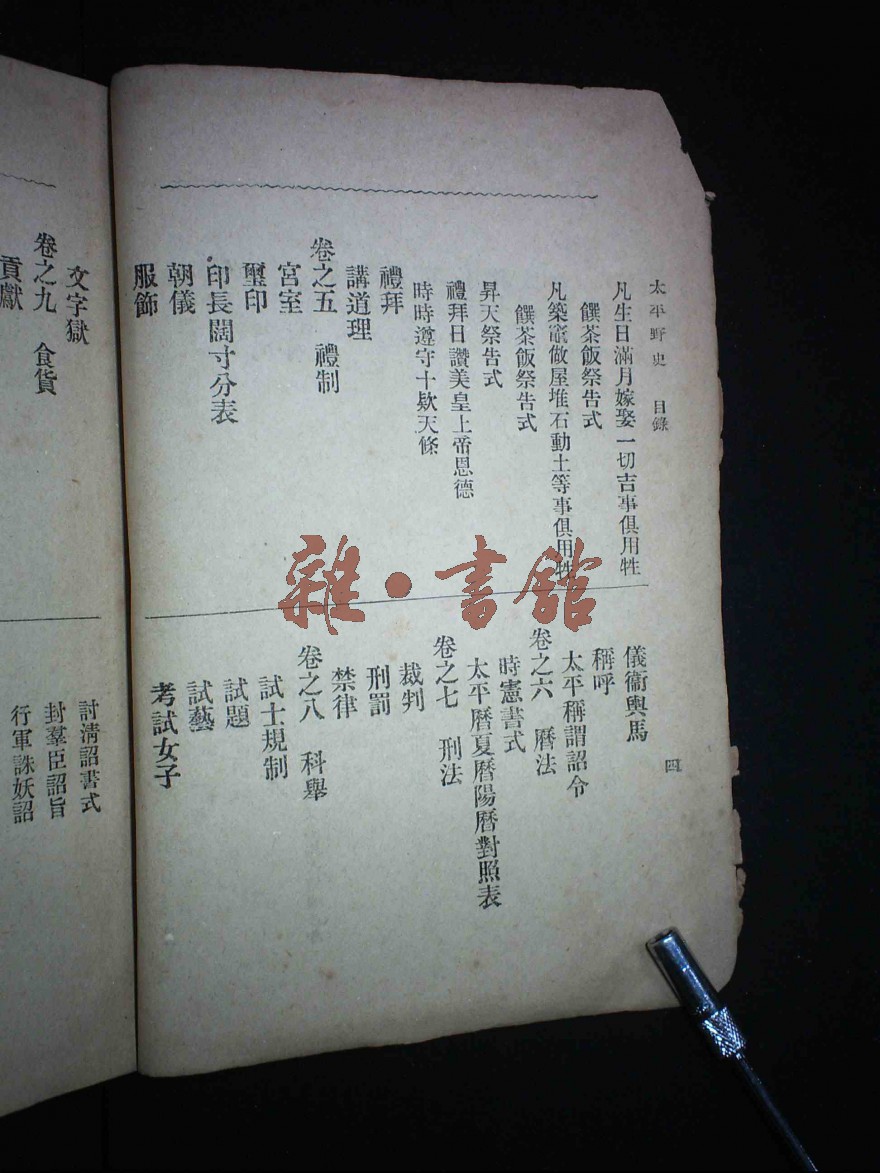 太平野史　目錄
四
凡生日滿月嫁娶一切吉事俱用牲
饌茶飯祭告式
凡築竈做屋堆石動土等事俱用牲
饌茶飯祭告式
昇天祭告式
禮拜日讚美皇上帝恩德
時時遵守十欵天條
禮拜
講道理
卷之五　禮制
宮室
璽印
印長闊寸分表
朝儀
服飾
儀衞輿馬
稱呼
太平稱謂詔令
卷之六　曆法
時憲書式
太平曆夏曆陽曆對照表
卷之七　刑法
裁判
刑罰
禁律
卷之八　科舉
試士規制
試題
試藝
考試女子
文字獄
卷之九　食貨
貢獻
討清詔書式
封羣臣詔旨
行軍誅妖詔
雜·書館